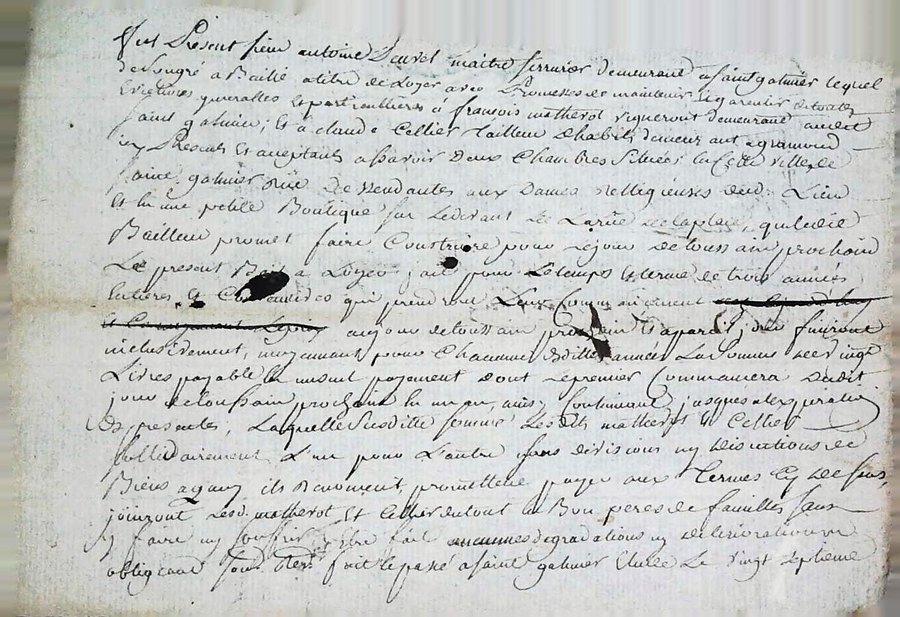 fut Présent sieur antoine Deuvet maitre serrurier demeurant a saint galmier lequel
de son gré a Baillé a titre de Loyer avec Promesses de maintenir & garentir de toutes
Evictions generalles et particullières a françois matherot vigneront demeurant audit
saint galmier, Et a claude Cellier Tailleur dhabits demeurant a grammond
icy Présents Et acceptants a savoir Deux Chambres situées en Cette ville de
saint galmier Rüe Dessendantes aux Dames relligieuses dud. Lieu
Et une petite Boutique sur Ledevant de Larüe de laplace, que ledit
Bailleur promet faire Construire pour Lejour de toussaint prochain
Le present Bail a Loyer fait pour Letemps & terme de trois années
Entieres & qui prendront Leur Commencement
aujour de toussaint prochain & apareil jour finiront
inclusivement, moyennant pour Chacune desdittes années La somme de vingt
Livres payable en un seul payement dont Lepremier Commancera Dudit
jour de toussaint prochain En un an, ainsy Continuant jusques alexpiration
des presentes, Laquelle Susditte somme Lesdits matherot & Cellier
sollidairement L'un pour L'autre sans division ny discutions de
Biens aquoy ils Renoncent, promettent payer aux Termes Cy Dessus,
joüiront Lesd. matherot Et Cellier dutout en Bon peres de familles sans
y faire ny souffrir être fait aucunnes degradations ny deteriorations
obligeant fait & passé a saint galmier Le vingt septieme